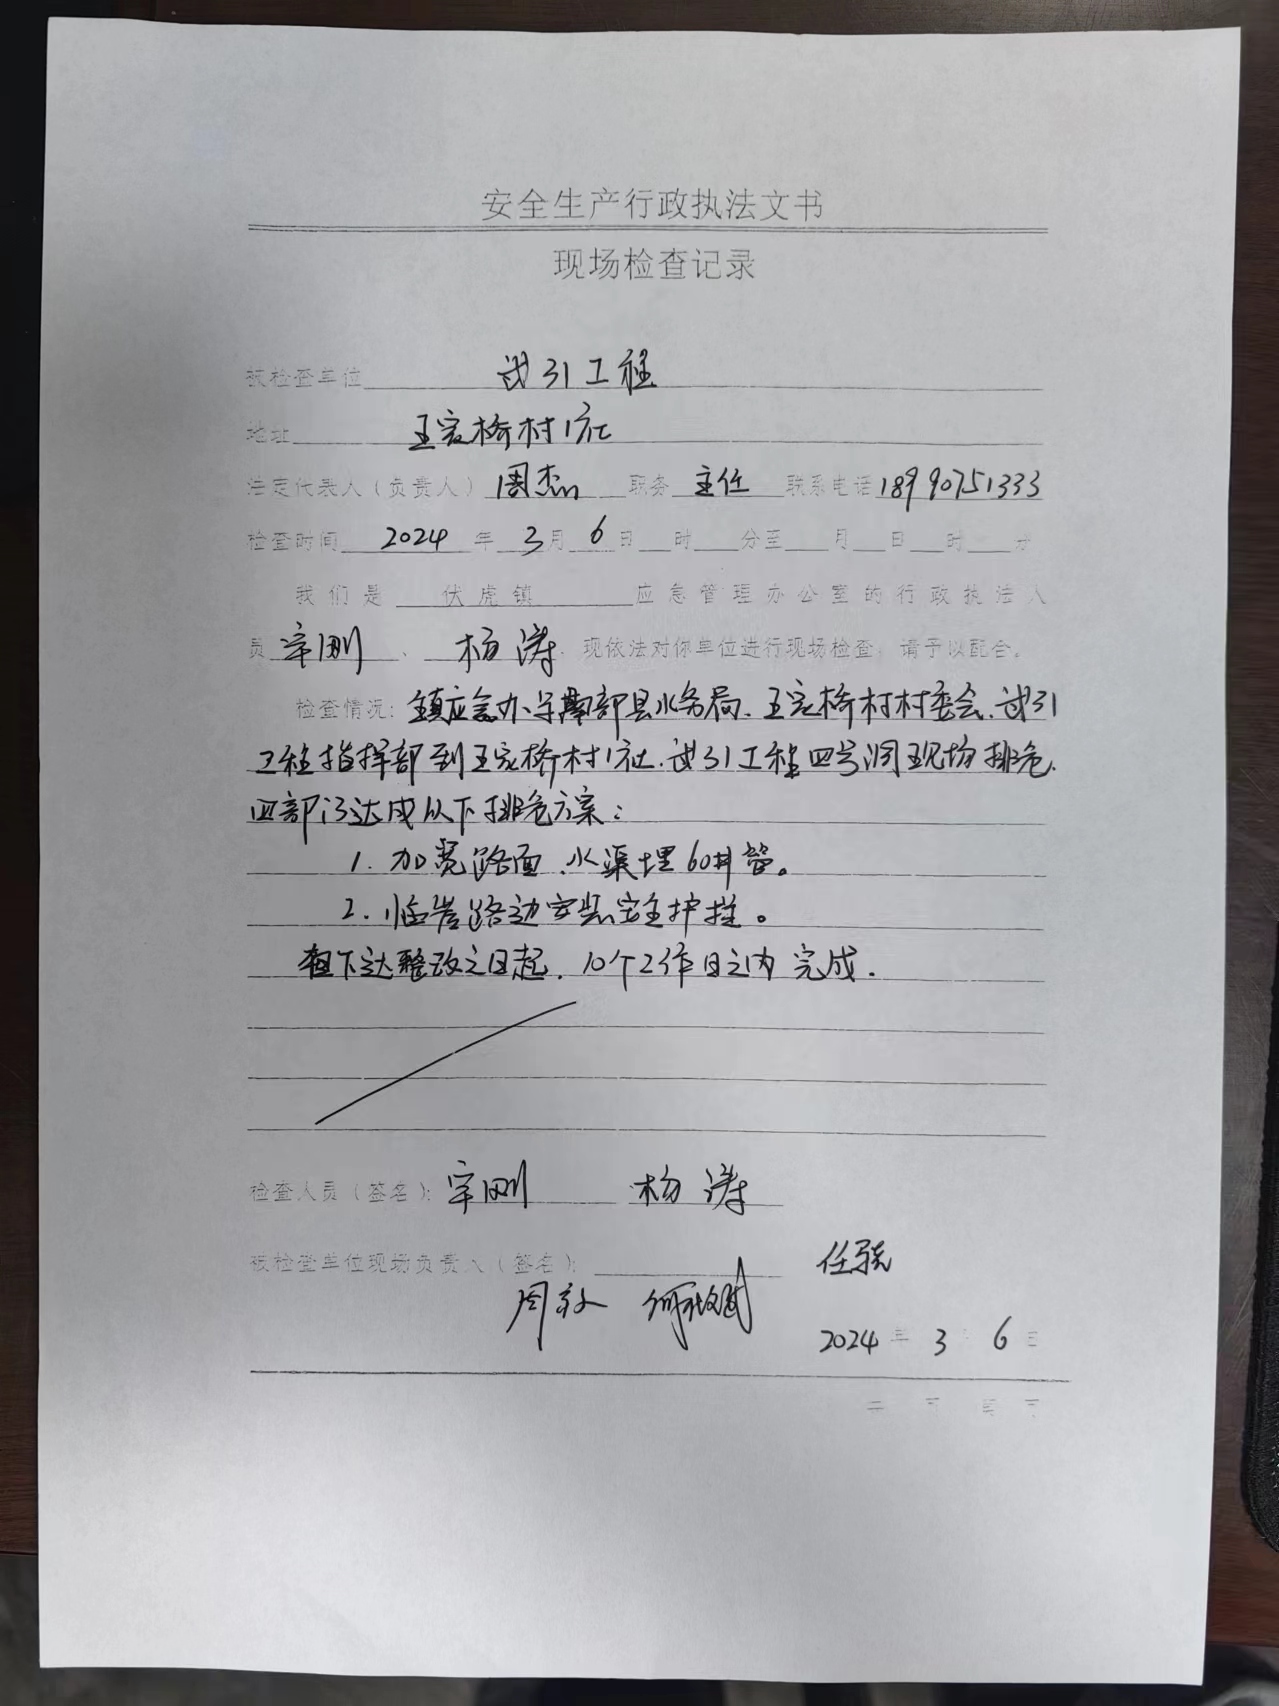 安全生产行政执法文书
现场检查记录
被检查单位 武引工程
地址 王家桥村1社
法定代表人（负责人） 周杰 职务 主任 联系电话 18990751333
检查时间 2024 年 3月 6日 时 分至 月 日 时 分
我们是 伏虎镇 应急管理办公室的行政执法人
员 宰刚 、 杨涛 现依法对你单位进行现场检查，请予以配合。
检查情况：镇应急办、南部县水务局、王家桥村村委会、武引
工程指挥部到王家桥村1社、武引工程四号洞现场排危.
四部门达成以下排危方案：
1. 加宽路面、水渠埋60#管。
2. 临岩路边安装安全护栏。
下达整改之日起，10个工作日之内完成.
检查人员（签名）：宰刚 杨涛
被检查单位现场负责人（签名）： 任
周 何
2024 年 3 月 6 日
共 页 第 页